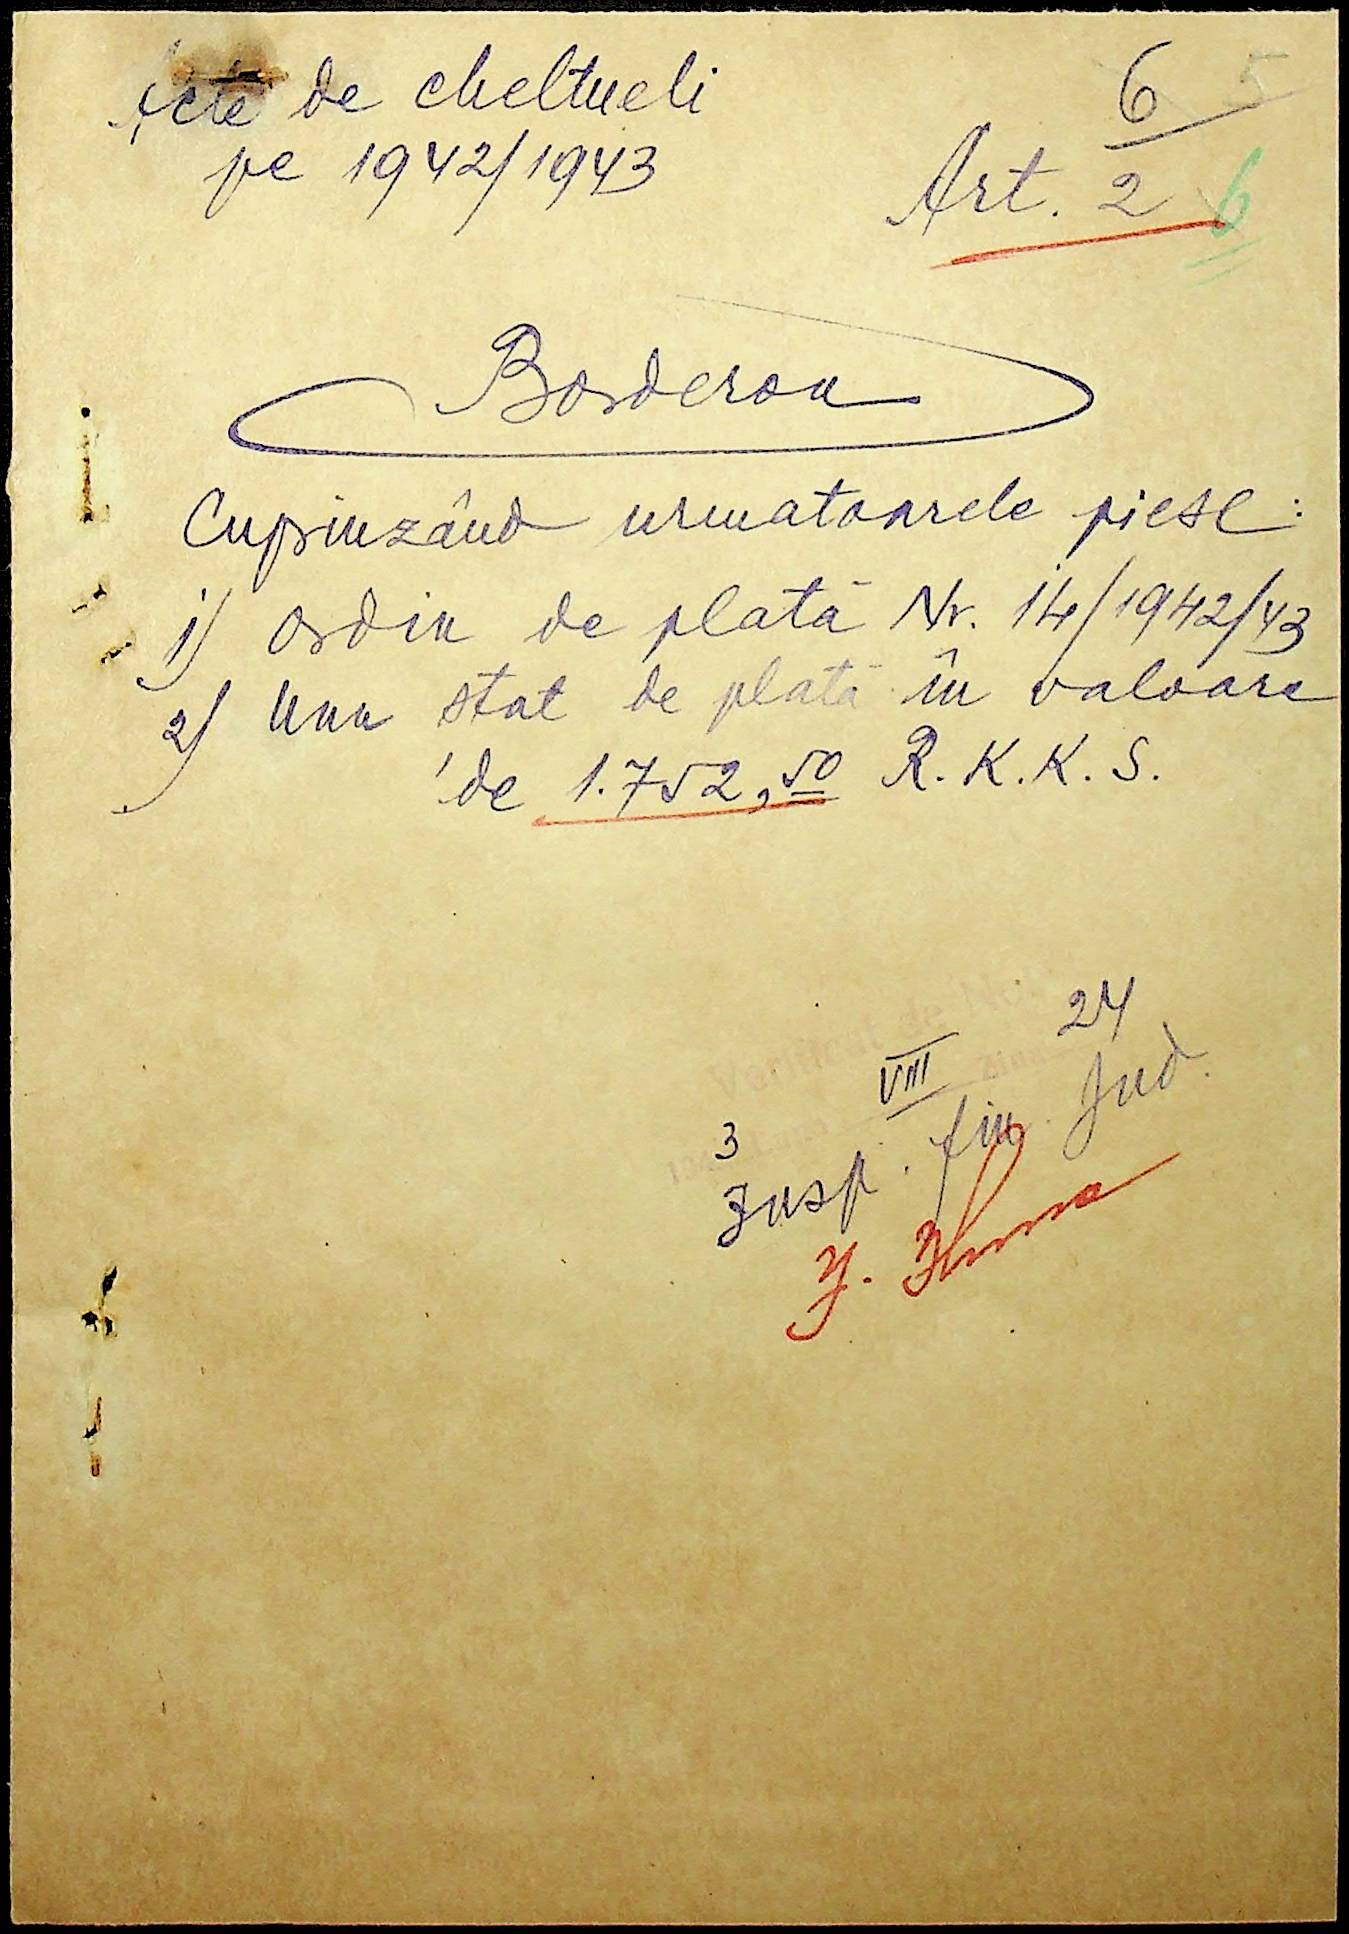 Acte de cheltueli
pe 1942/1943
6 5
Art. 2 6
Borderou
Cuprinzând urmatoarele piese:
1) Ordin de plată Nr. 14/1942/43
2) Unu stat de plată în valoare
de 1.752,50 R.K.K.S.
Verificat de
24
VIII
3
Insp. fin. Jud.